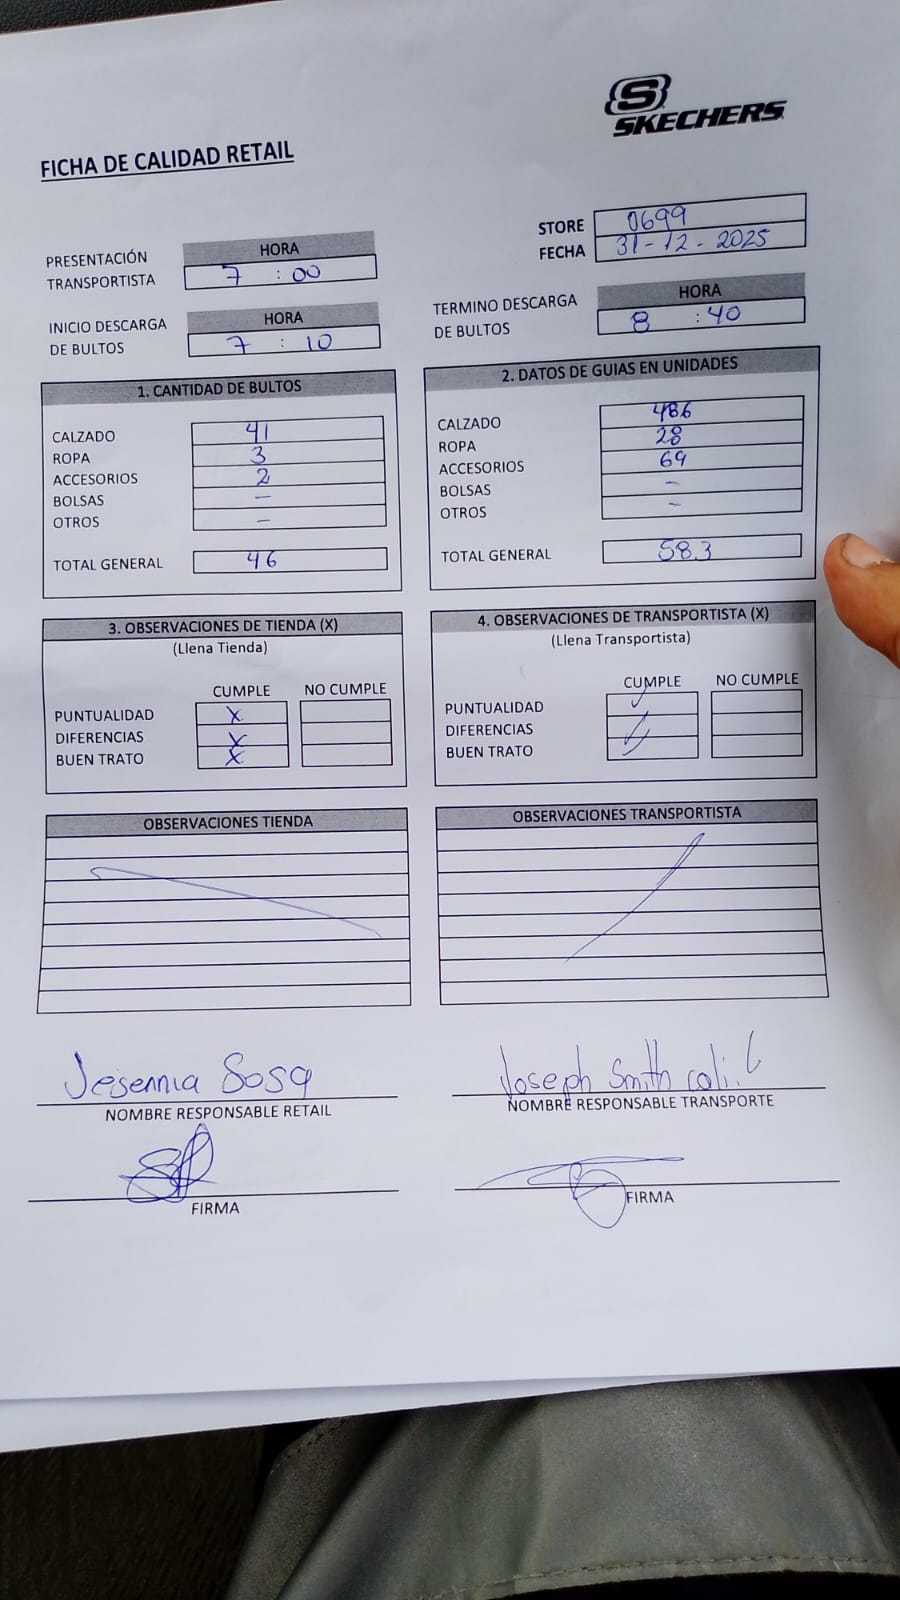 SKECHERS
FICHA DE CALIDAD RETAIL
STORE 0699
FECHA 31-12-2025
PRESENTACIÓN TRANSPORTISTA
HORA
7 : 00
INICIO DESCARGA DE BULTOS
HORA
7 : 10
TERMINO DESCARGA DE BULTOS
HORA
8 : 40
1. CANTIDAD DE BULTOS
CALZADO 41
ROPA 3
ACCESORIOS 2
BOLSAS -
OTROS -
TOTAL GENERAL 46
2. DATOS DE GUIAS EN UNIDADES
CALZADO 486
ROPA 28
ACCESORIOS 69
BOLSAS -
OTROS -
TOTAL GENERAL 583
3. OBSERVACIONES DE TIENDA (X)
(Llena Tienda)
CUMPLE NO CUMPLE
PUNTUALIDAD X
DIFERENCIAS X
BUEN TRATO X
4. OBSERVACIONES DE TRANSPORTISTA (X)
(Llena Transportista)
CUMPLE NO CUMPLE
PUNTUALIDAD
DIFERENCIAS
BUEN TRATO
OBSERVACIONES TIENDA
OBSERVACIONES TRANSPORTISTA
Jesennia Sosa
NOMBRE RESPONSABLE RETAIL
FIRMA
Joseph Smith
NOMBRE RESPONSABLE TRANSPORTE
FIRMA